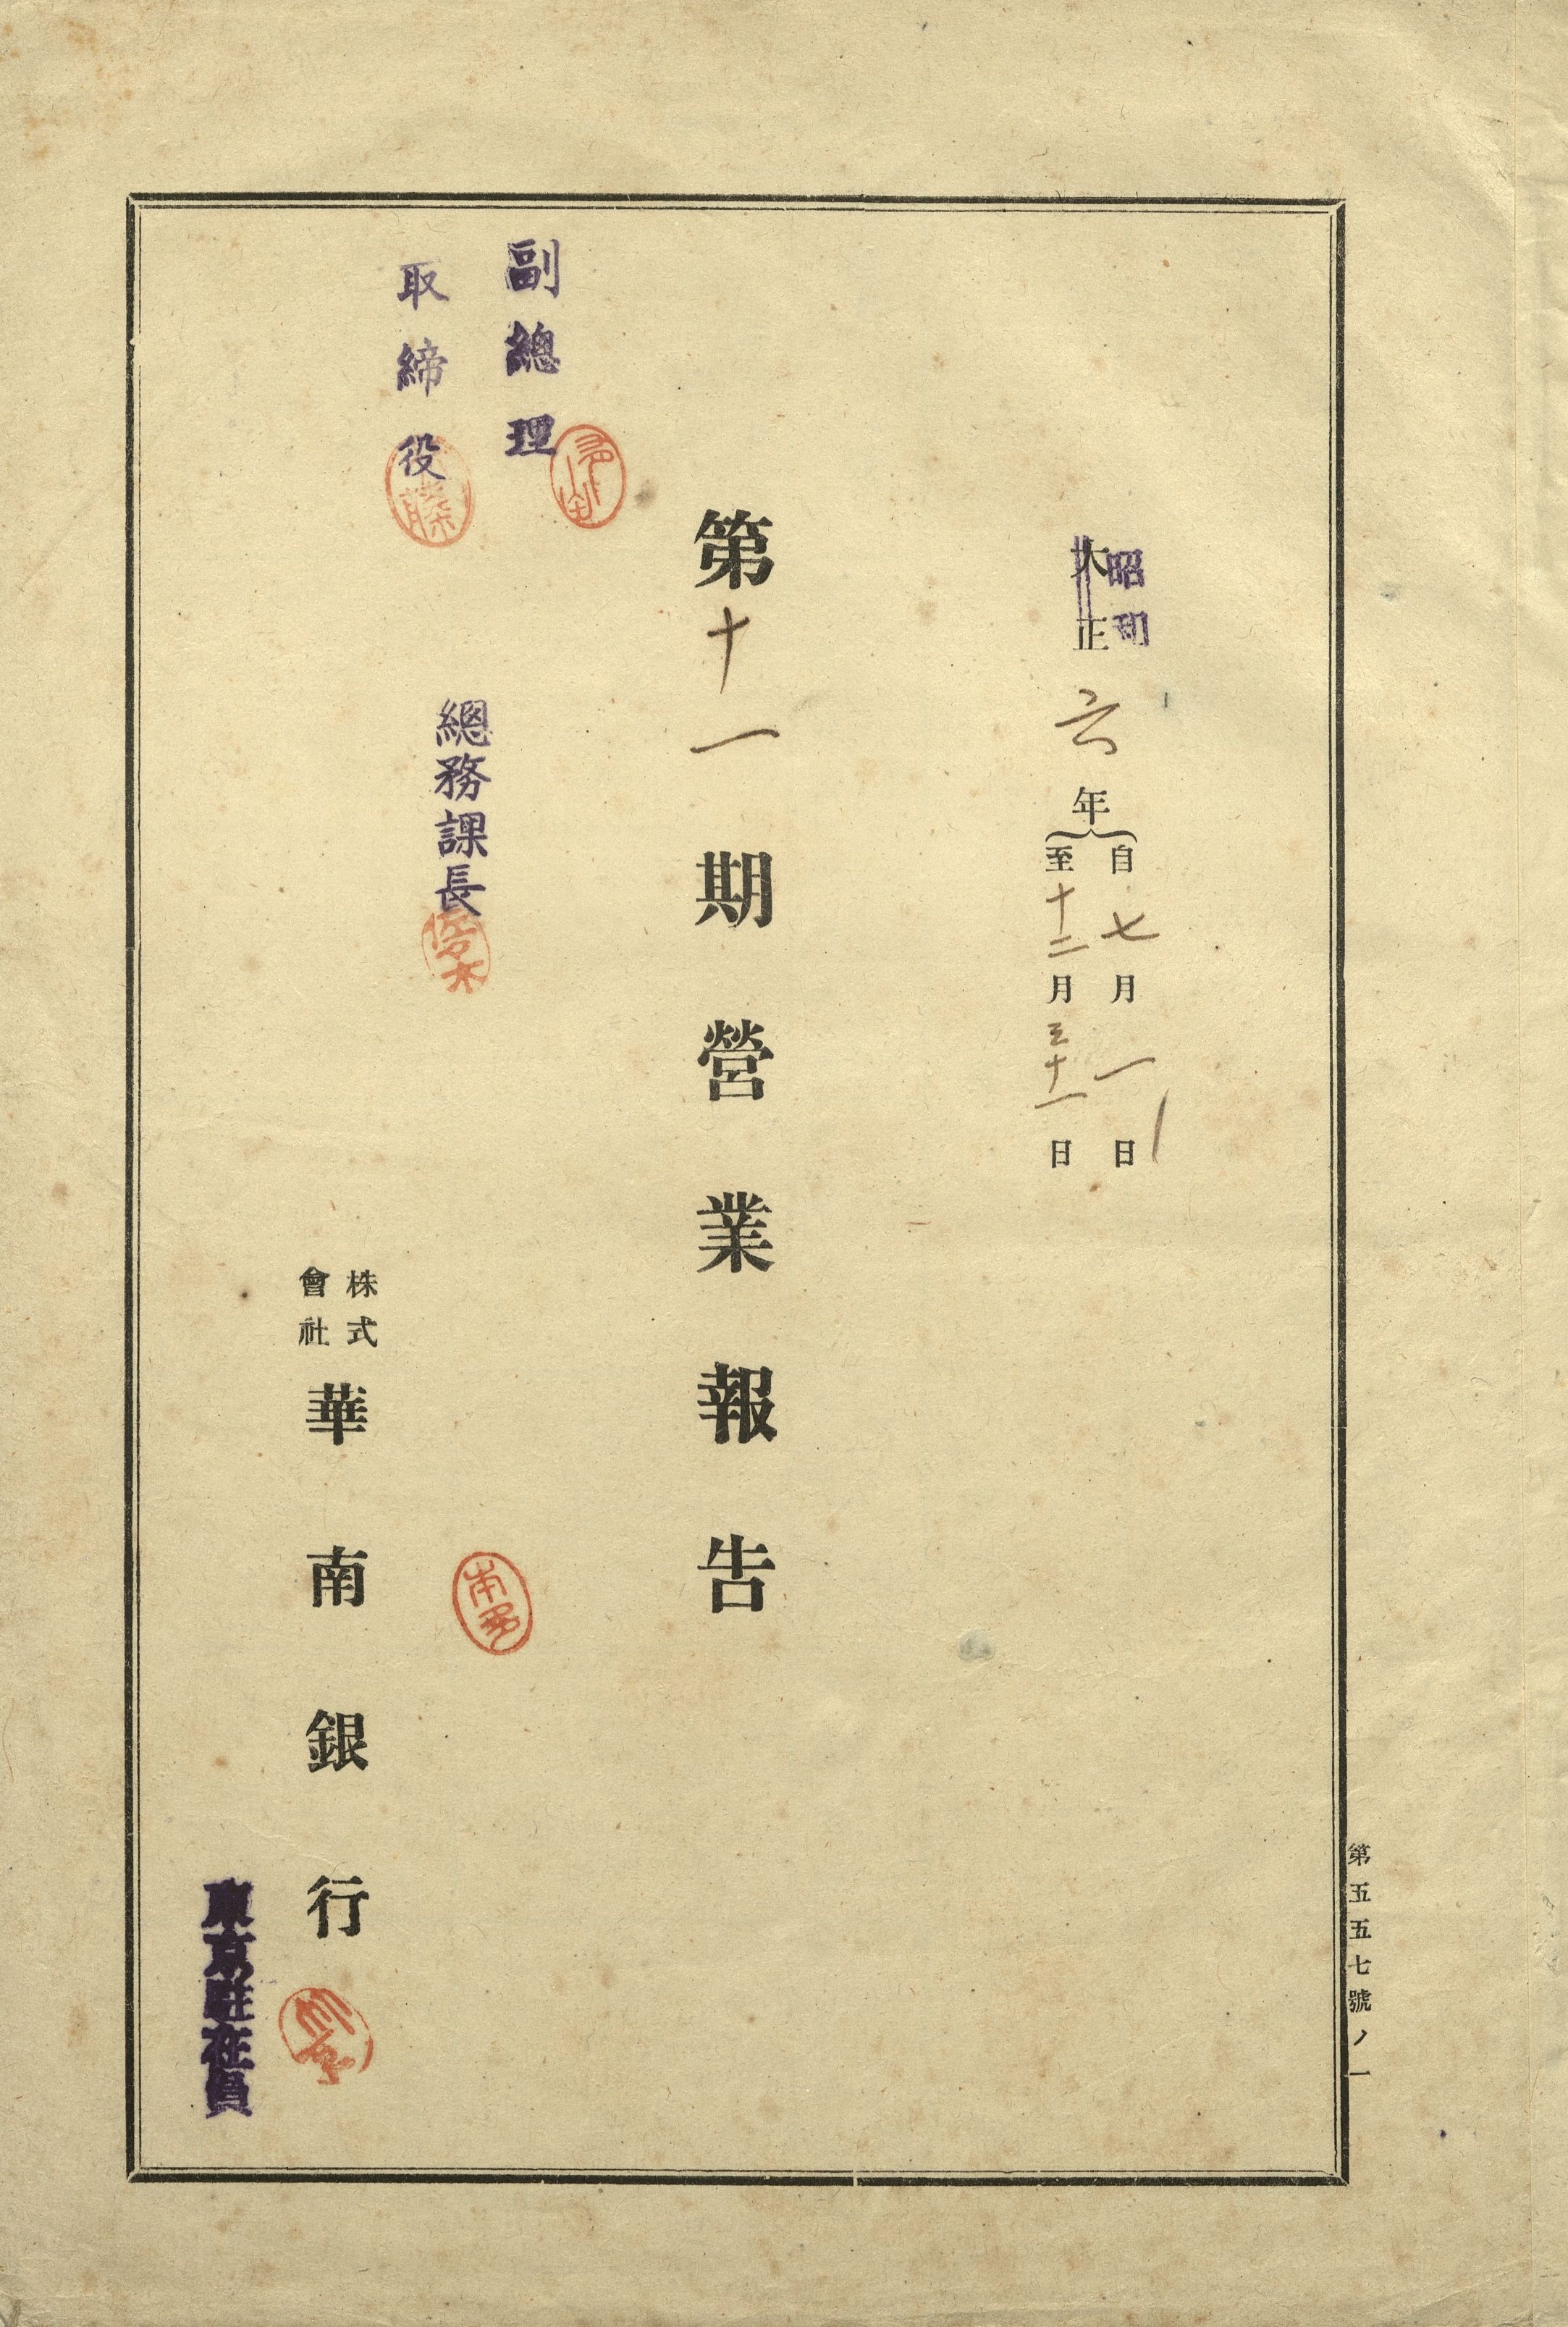 昭和
大正六年
自七月一日
至十二月三十一日
第十一期營業報告
副總理
取締役
藤
總務課長
佐々木
本多
株式會社華南銀行
東京駐在員
第五五七號ノ一